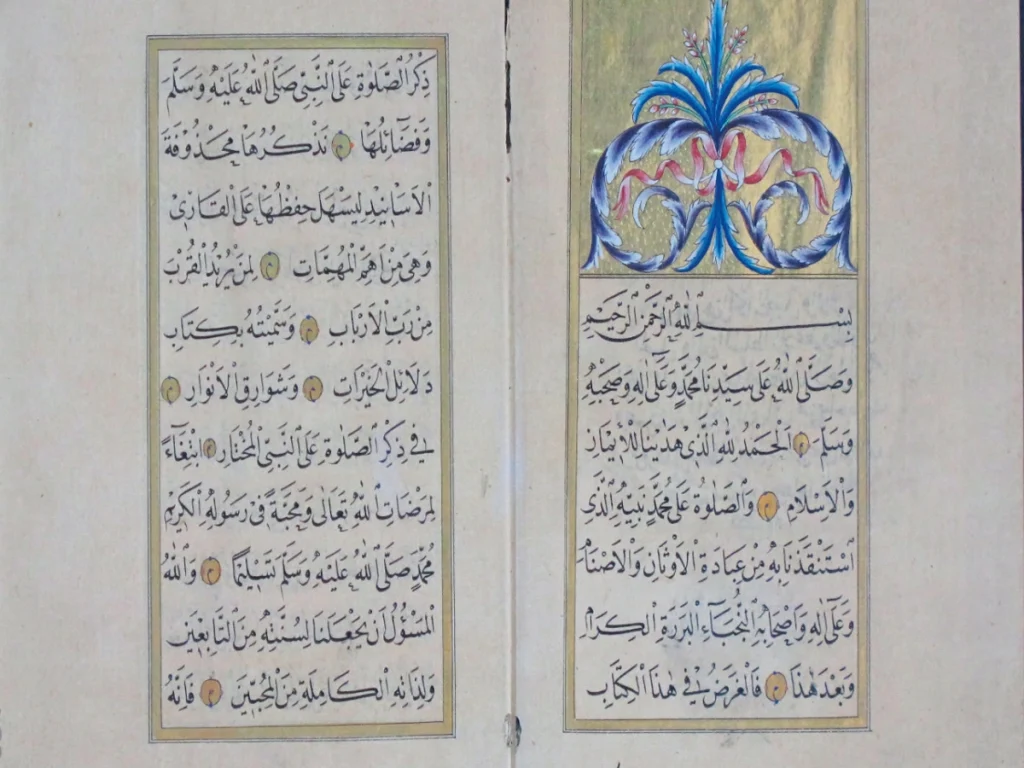 بِسْمِ اللّٰهِ الرَّحْمٰنِ الرَّحِيمِ
وَصَلَّى اللّٰهُ عَلٰى سَيِّدِنَا مُحَمَّدٍ وَعَلٰى اٰلِهِ وَصَحْبِهِ
وَسَلَّمَ اَلْحَمْدُ لِلّٰهِ الَّذِى هَدٰينَا لِلْاِيمَانِ
وَالْاِسْلَامِ وَالصَّلٰوةُ عَلٰى مُحَمَّدٍ نَبِيِّهِ الَّذِى
اسْتَنْقَذَنَا بِهِ مِنْ عِبَادَةِ الْاَوْثَانِ وَالْاَصْنَامِ
وَعَلٰى اٰلِهِ وَاَصْحَابِهِ النُّجَبَاءِ الْبَرَرَةِ الْكِرَامِ
وَبَعْدَ هٰذَا فَالْغَرَضُ فِى هٰذَا الْكِتَابِ
ذِكْرُ الصَّلٰوةِ عَلَى النَّبِىِّ صَلَّى اللّٰهُ عَلَيْهِ وَسَلَّمَ
وَفَضَائِلُهَا نَذْكُرُهَا مَحْذُوفَةَ
الْاَسَانِيدِ لِيَسْهَلَ حِفْظُهَا عَلَى الْقَارِئِ
وَهِىَ مِنْ اَهَمِّ الْمُهِمَّاتِ لِمَنْ يُرِيدُ الْقُرْبَ
مِنْ رَبِّ الْاَرْبَابِ وَسَمَّيْتُهُ بِكِتَابِ
دَلَائِلِ الْخَيْرَاتِ وَشَوَارِقِ الْاَنْوَارِ
فِى ذِكْرِ الصَّلٰوةِ عَلَى النَّبِىِّ الْمُخْتَارِ ابْتِغَاءً
لِمَرْضَاتِ اللّٰهِ تَعَالٰى وَمَحَبَّةً فِى رَسُولِهِ الْكَرِيمِ
مُحَمَّدٍ صَلَّى اللّٰهُ عَلَيْهِ وَسَلَّمَ تَسْلِيمًا وَاللّٰهُ
الْمَسْؤُلُ اَنْ يَجْعَلَنَا لِسُنَّتِهِ مِنَ التَّابِعِينَ
وَلِذَاتِهِ الْكَامِلَةِ مِنَ الْمُحِبِّينَ فَاِنَّهُ